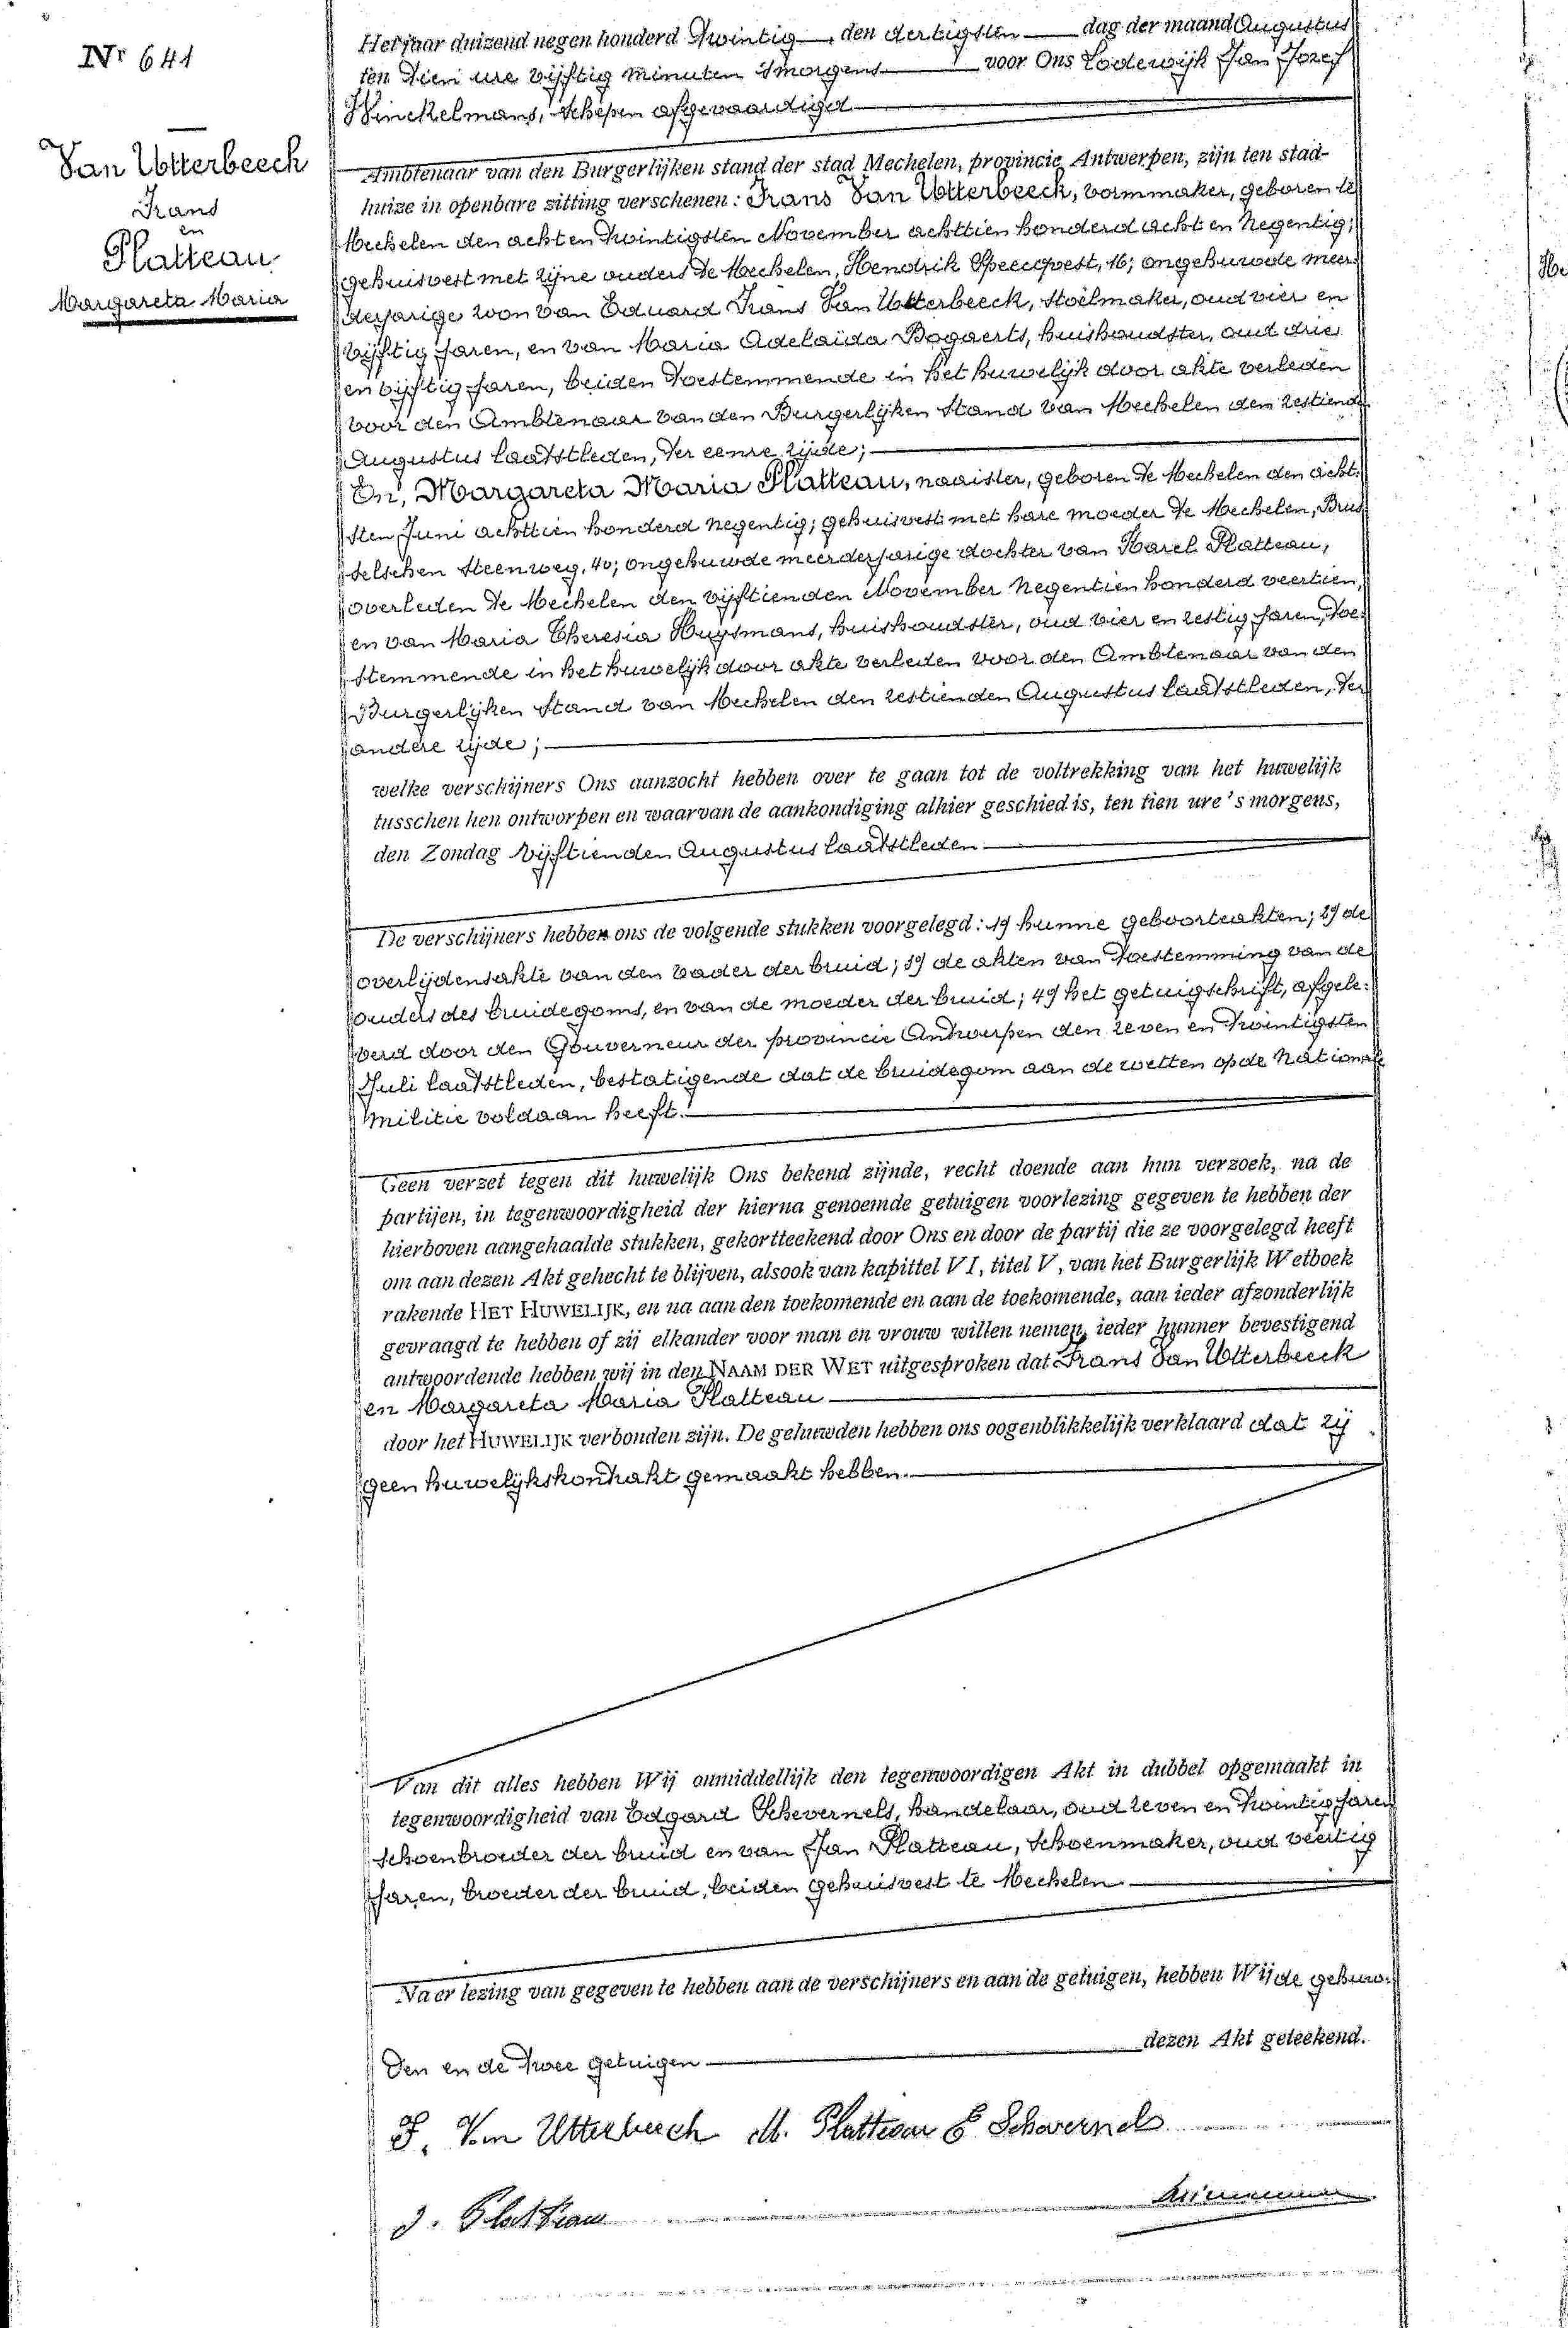 Nr 641
Van Utterbeeck
Frans
en
Platteau
Margareta Maria
Het jaar duizend negen honderd twintig, den dertigsten dag der maand Augustus
ten tien ure vijftig minuten 's morgens voor Ons Lodewijk Jan Jozef
Winckelmans, Schepen afgevaardigd
Ambtenaar van den Burgerlijken stand der stad Mechelen, provincie Antwerpen, zijn ten stad-
huize in openbare zitting verschenen: Frans Van Utterbeeck, vormmaker, geboren te
Mechelen den acht en twintigsten November achttien honderd acht en negentig;
gehuisvest met zijne ouders te Mechelen, Hendrik Speecqvest, 16; ongehuwde meer:
derjarige zoon van Eduard Frans Van Utterbeeck, stoelmaker, oud vier en
vijftig jaren, en van Maria Adelaïda Bogaerts, huishoudster, oud drie
en vijftig jaren, beiden toestemmende in het huwelijk door akte verleden
voor den Ambtenaar van den Burgerlijken Stand van Mechelen den zestienden
Augustus laatstleden, ter eenre zijde;
En, Margareta Maria Platteau, naaister, geboren te Mechelen den acht:
sten Juni achttien honderd negentig; gehuisvest met hare moeder te Mechelen, Brus
selschen steenweg, 40; ongehuwde meerderjarige dochter van Karel Platteau,
overleden te Mechelen den vijftienden November negentien honderd veertien,
en van Maria Theresia Huysmans, huishoudster, oud vier en zestig jaren, toe:
stemmende in het huwelijk door akte verleden voor den Ambtenaar van den
Burgerlijken Stand van Mechelen den zestienden Augustus laatstleden, ter
andere zijde;
welke verschijners Ons aanzocht hebben over te gaan tot de voltrekking van het huwelijk
tusschen hen ontworpen en waarvan de aankondiging alhier geschied is, ten tien ure 's morgens,
den Zondag vijftienden Augustus laatstleden
De verschijners hebben ons de volgende stukken voorgelegd: 1º hunne geboorteakten; 2º de
overlijdensakte van den vader der bruid; 3º de akten van toestemming van de
ouders des bruidegoms, en van de moeder der bruid; 4º het getuigschrift, afgele:
verd door den Gouverneur der provincie Antwerpen den zeven en twintigsten
Juli laatstleden, bestatigende dat de bruidegom aan de wetten op de nationale
militie voldaan heeft.
Geen verzet tegen dit huwelijk Ons bekend zijnde, recht doende aan hun verzoek, na de
partijen, in tegenwoordigheid der hierna genoemde getuigen voorlezing gegeven te hebben der
hierboven aangehaalde stukken, gekortteekend door Ons en door de partij die ze voorgelegd heeft
om aan dezen Akt gehecht te blijven, alsook van kapittel VI, titel V, van het Burgerlijk Wetboek
rakende HET HUWELIJK, en na aan den toekomende en aan de toekomende, aan ieder afzonderlijk
gevraagd te hebben of zij elkander voor man en vrouw willen nemen, ieder hunner bevestigend
antwoordende hebben wij in den NAAM DER WET uitgesproken dat Frans Van Utterbeeck
en Margareta Maria Platteau
door het HUWELIJK verbonden zijn. De gehuwden hebben ons oogenblikkelijk verklaard dat zij
geen huwelijkskontrakt gemaakt hebben.
Van dit alles hebben Wij onmiddellijk den tegenwoordigen Akt in dubbel opgemaakt in
tegenwoordigheid van Edgard Schevernels, handelaar, oud zeven en twintig jaren
schoonbroeder der bruid en van Jan Platteau, schoenmaker, oud veertig
jaren, broeder der bruid, beiden gehuisvest te Mechelen.
Na er lezing van gegeven te hebben aan de verschijners en aan de getuigen, hebben Wij de gehuw:
den en de twee getuigen dezen Akt geteekend.
F. Van Utterbeeck M. Platteau E Schevernels
J. Platteau